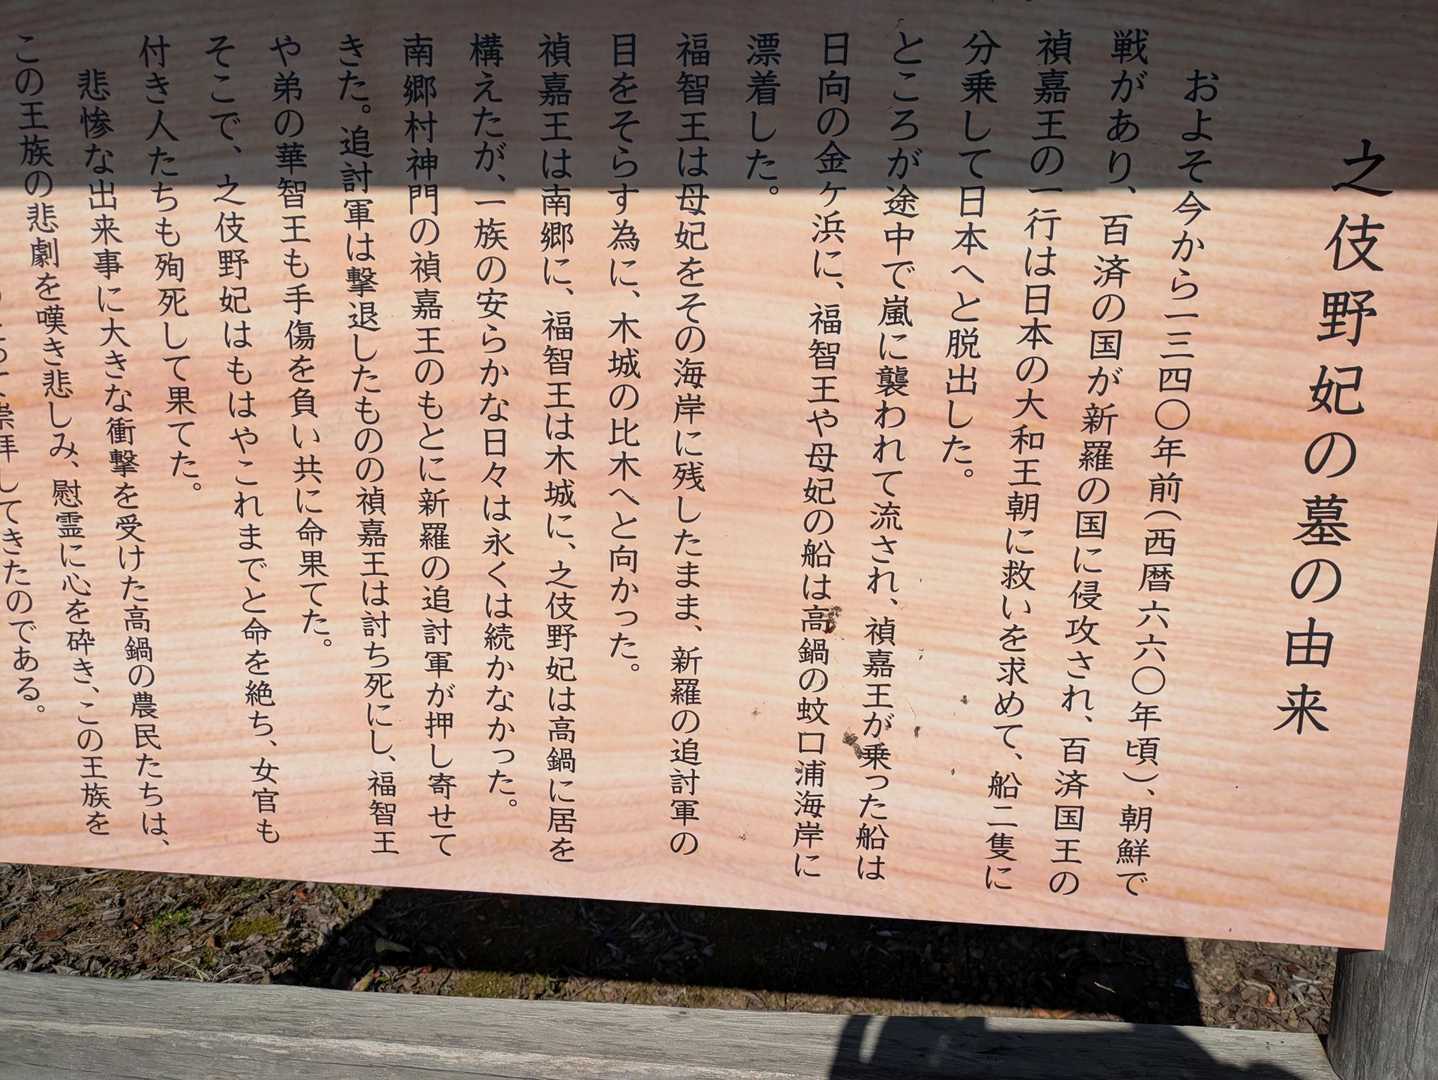 之伎野妃の墓の由来
およそ今から一三四〇年前(西暦六六〇年頃)、朝鮮で
戦があり、百済の国が新羅の国に侵攻され、百済国王の
禎嘉王の一行は日本の大和王朝に救いを求めて、船二隻に
分乗して日本へと脱出した。
ところが途中で嵐に襲われて流され、禎嘉王が乗った船は
日向の金ケ浜に、福智王や母妃の船は高鍋の蚊口浦海岸に
漂着した。
福智王は母妃をその海岸に残したまま、新羅の追討軍の
目をそらす為に、木城の比木へと向かった。
禎嘉王は南郷に、福智王は木城に、之伎野妃は高鍋に居を
構えたが、一族の安らかな日々は永くは続かなかった。
南郷村神門の禎嘉王のもとに新羅の追討軍が押し寄せて
きた。追討軍は撃退したものの禎嘉王は討ち死にし、福智王
や弟の華智王も手傷を負い共に命果てた。
そこで、之伎野妃はもはやこれまでと命を絶ち、女官も
付き人たちも殉死して果てた。
悲惨な出来事に大きな衝撃を受けた高鍋の農民たちは、
この王族の悲劇を嘆き悲しみ、慰霊に心を砕き、この王族を
崇拝してきたのである。